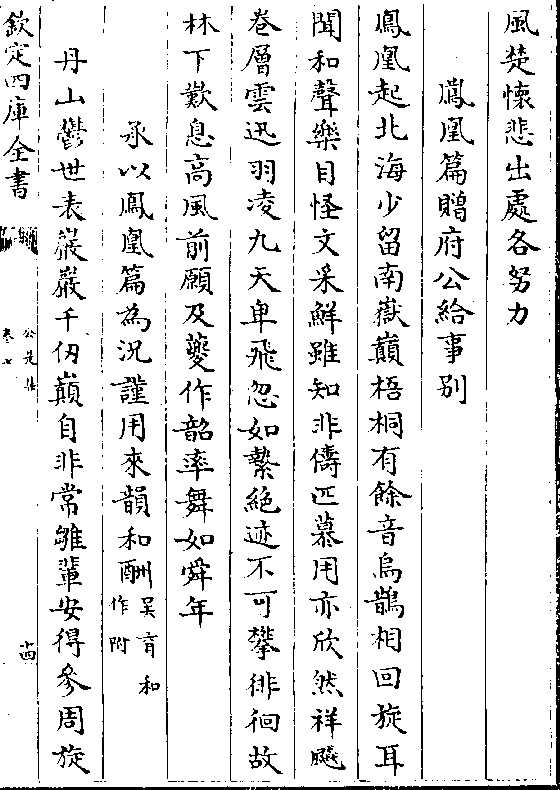 風楚懷悲出處各努力
鳳凰篇贈府公給事別
鳳凰起北海少留南嶽巔梧桐有餘音烏鵲相回旋耳
聞和聲樂目怪文采鮮雖知非儔匹慕用亦欣然祥飈
巻層雲迅羽凌九天卑飛忽如縶絶迹不可攀徘徊故
林下歎息髙風前願及夔作韶率舞如舜年
承以鳳凰篇為況謹用來韻和酬吳育和作附
丹山鬱世表巖巖千仞巔自非常雛輩安得參周旋
欽定四庫全書
公是集
卷七
十四